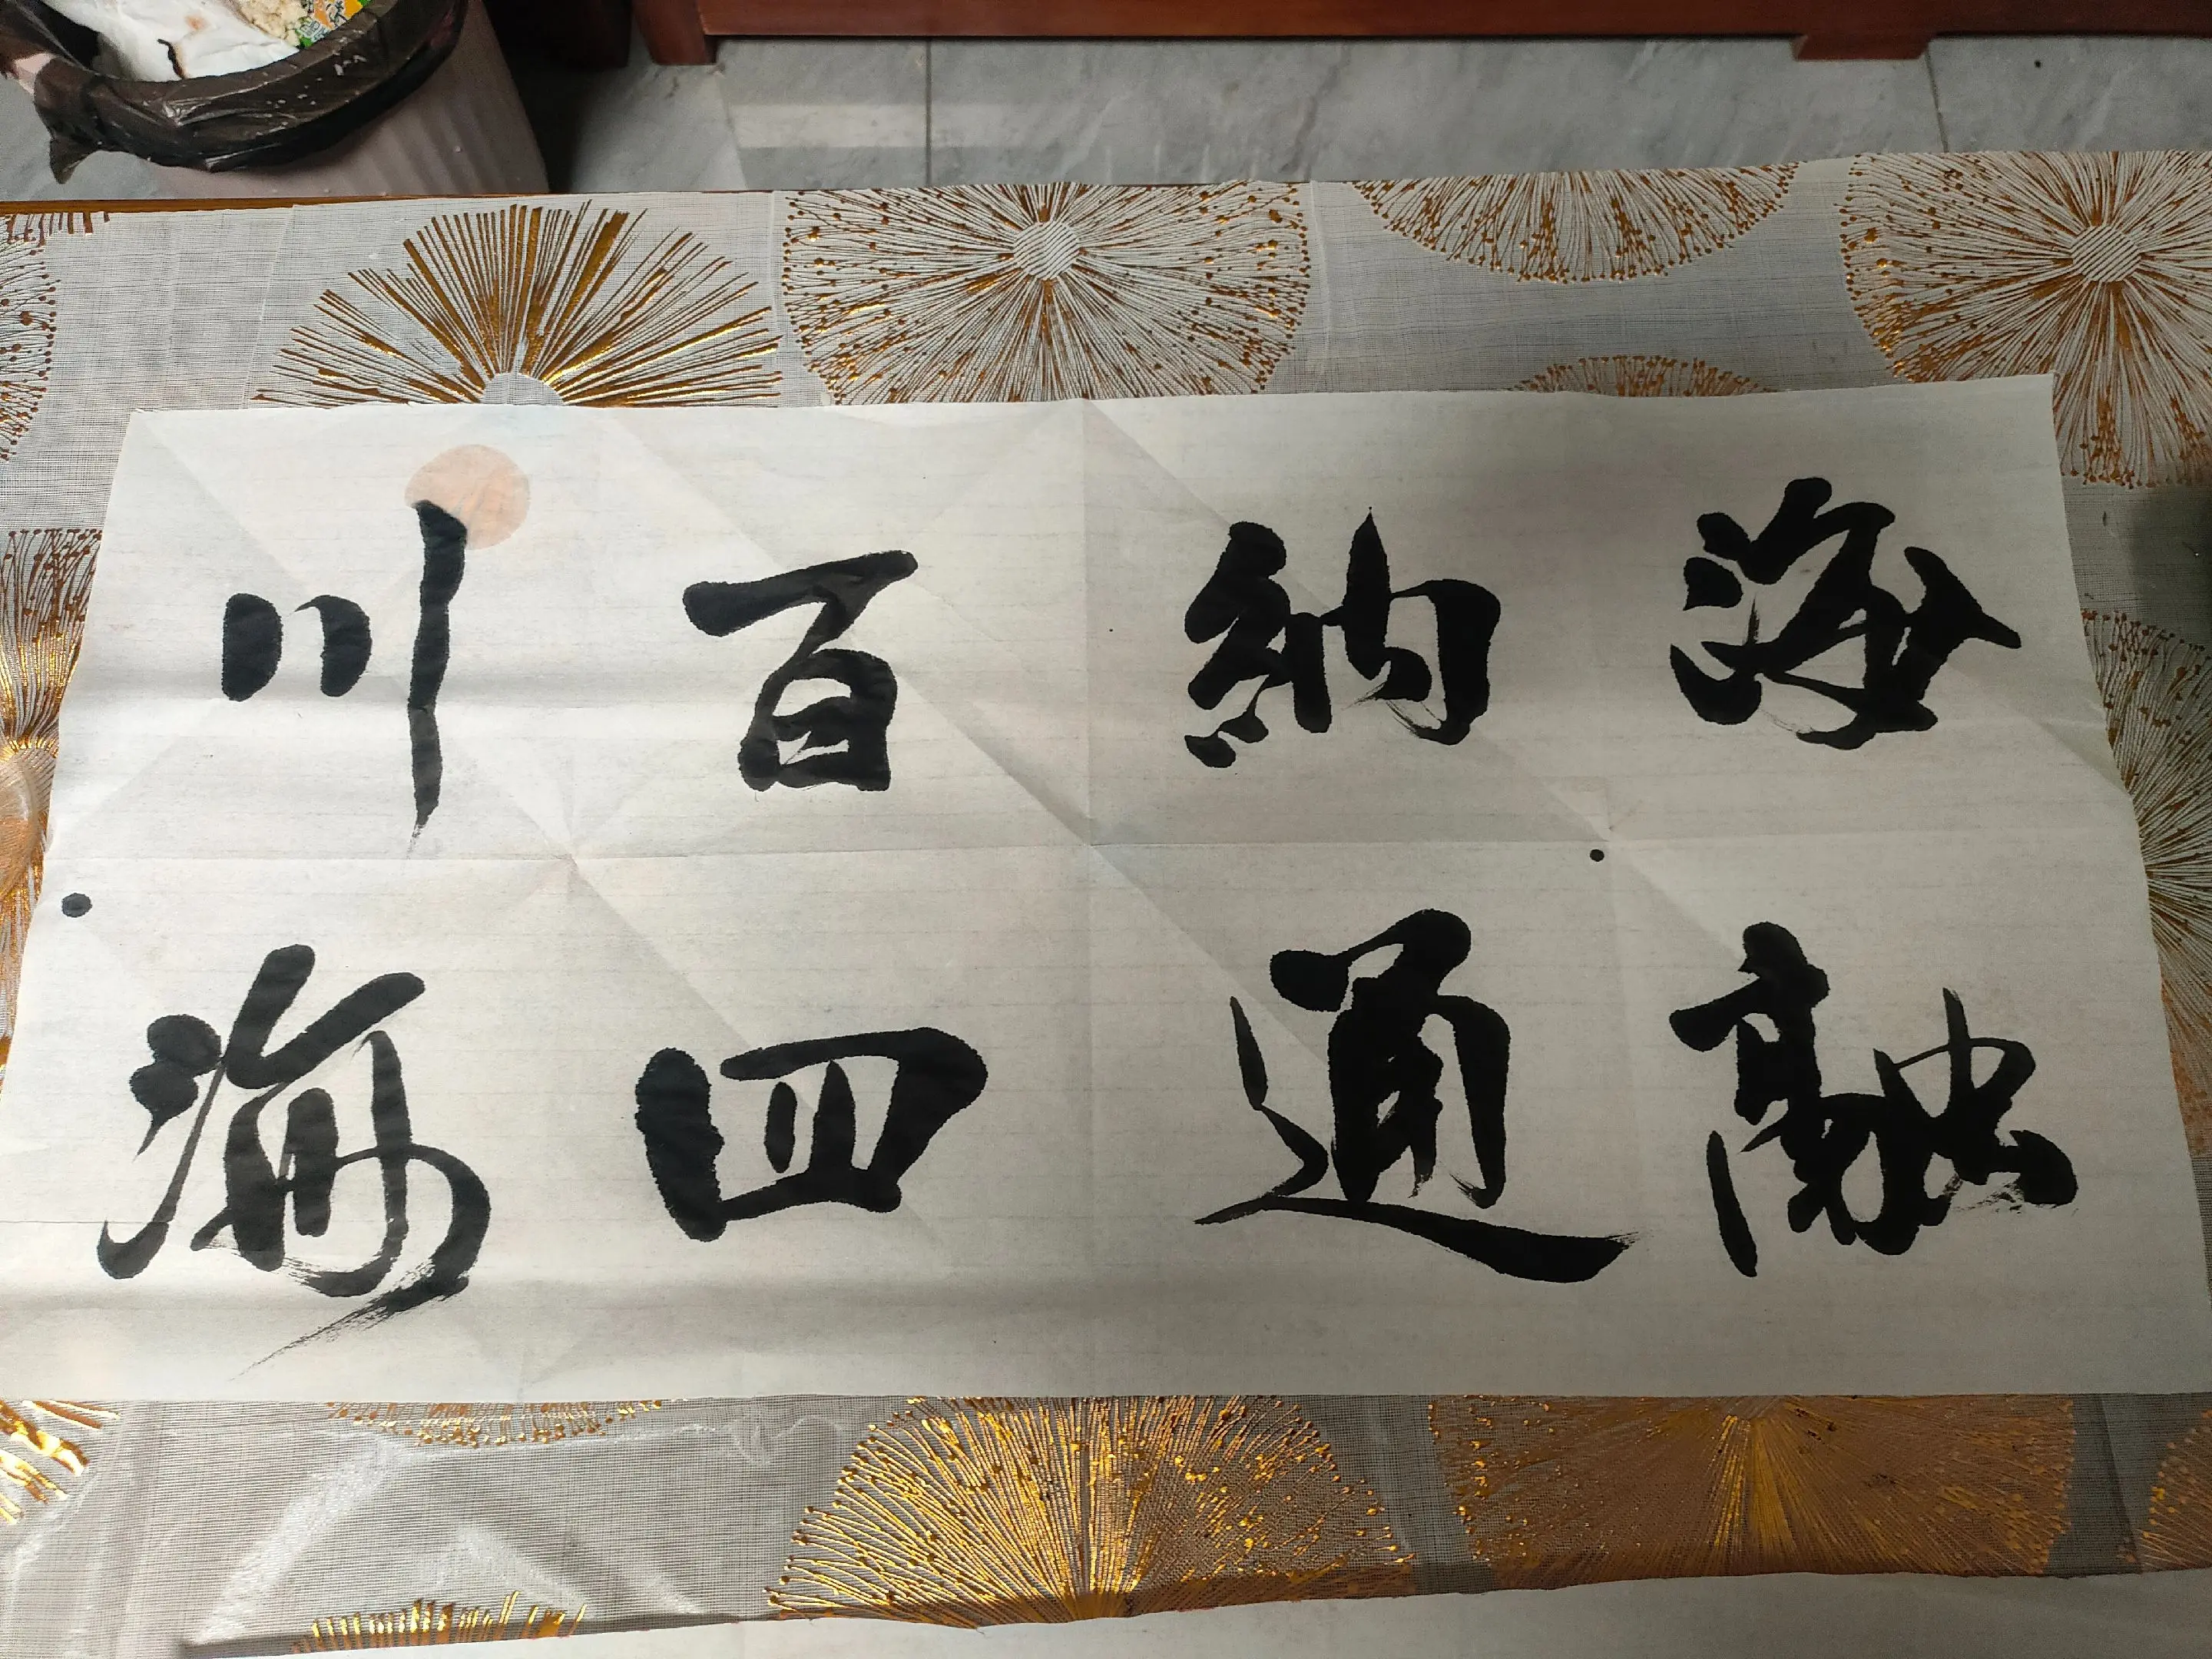 海納百川
融通四海